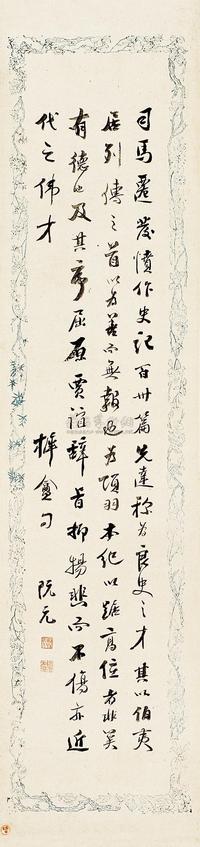 司馬遷發憤作史記百卅篇先達称为良史之才其以伯夷
居列傳之首以为善而無報也为項羽本纪以踞高位者非关
有德也及其序屈原賈誼辞旨抑揚悲而不傷亦近
代之偉才
阮元